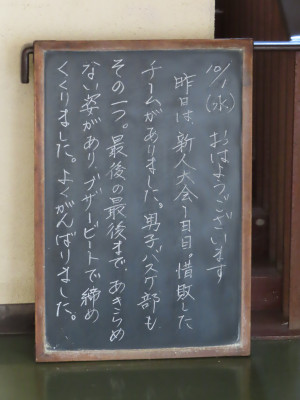 10/1(水) おはようございます
昨日は、新人大会1日目。惜敗した
チームがありました。男子バスケ部も
その一つ。最後の最後まで、あきらめ
ない姿があり、ブザービートで締め
くくりました。よくがんばりました。